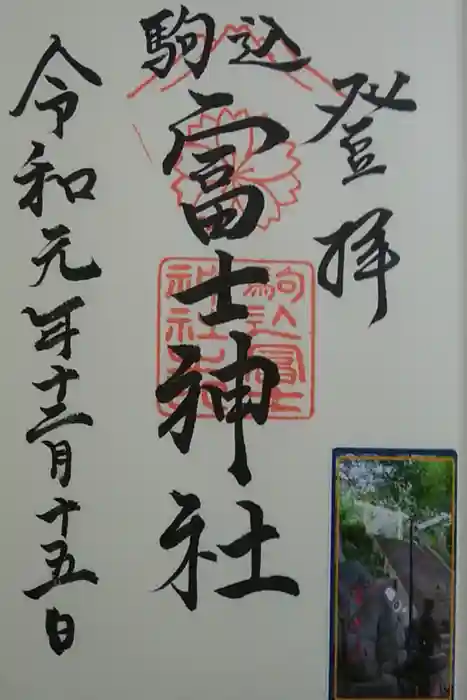 登拝
駒込
冨士神社
駒込冨士
神社
令和元年十二月十五日